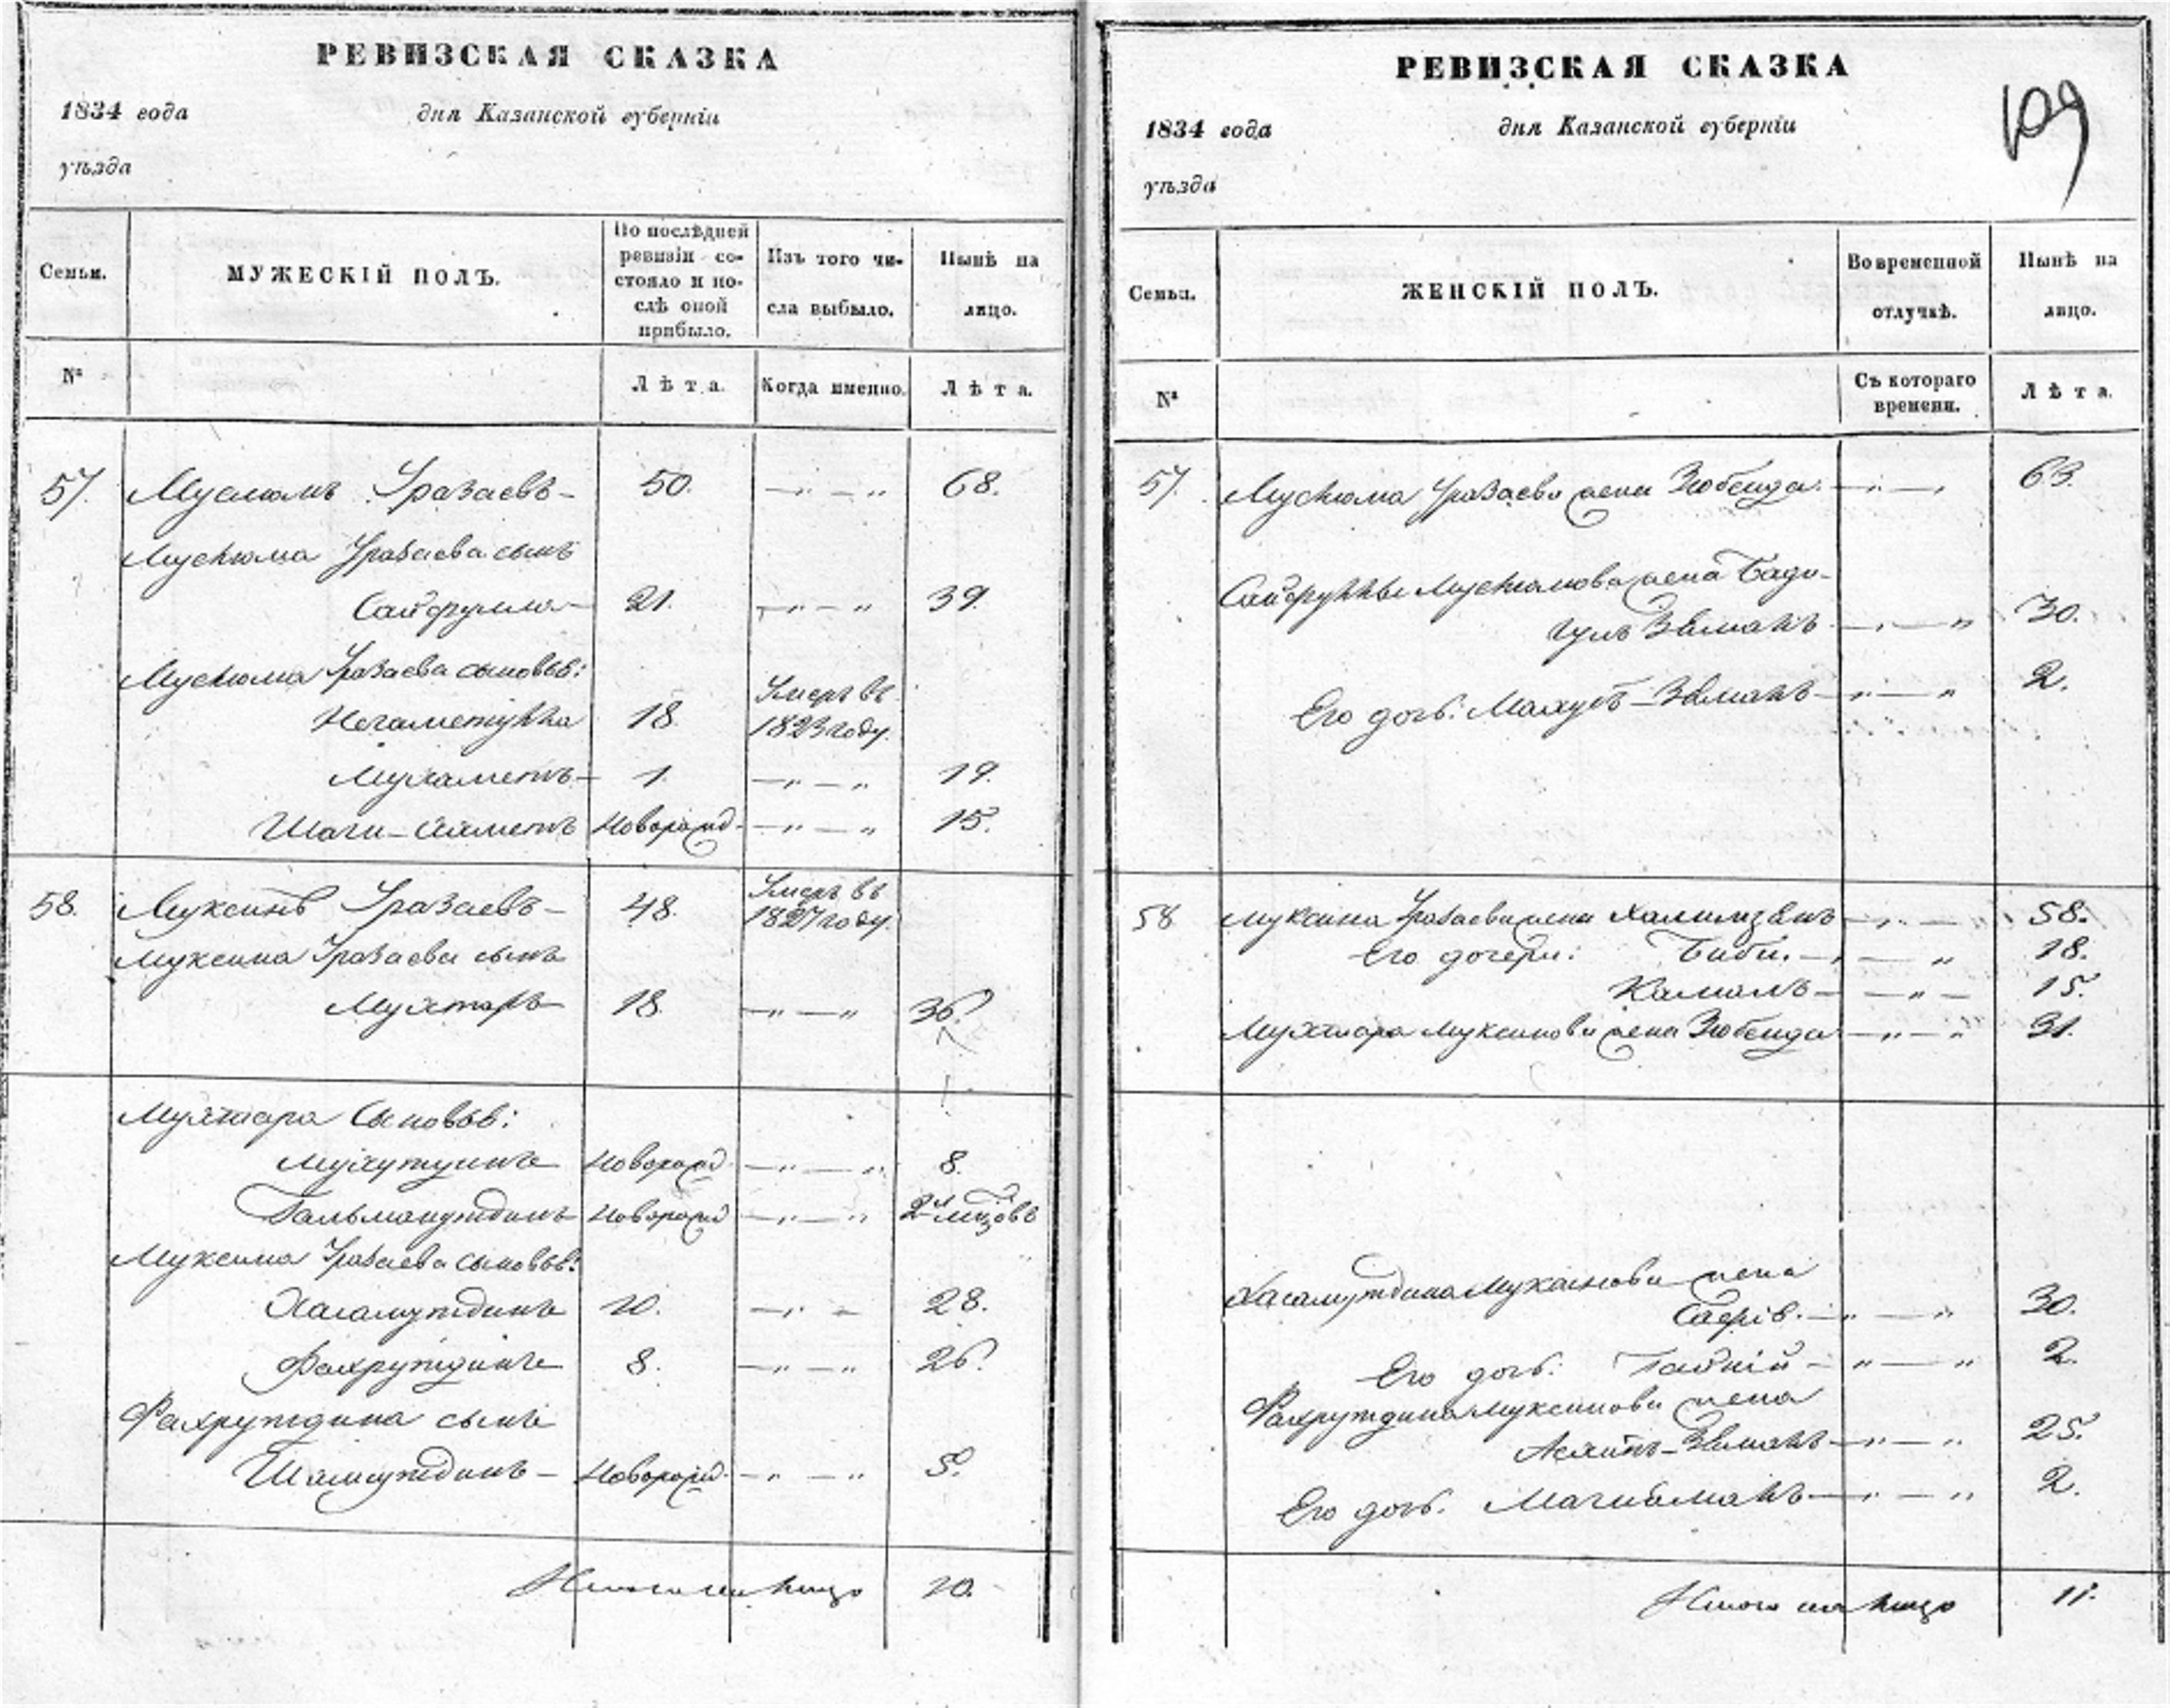 РЕВИЗСКАЯ СКАЗКА
1834 года дня Казанской губерніи
уѣзда
Семьи. МУЖЕСКІЙ ПОЛЪ. По послѣдней ревизіи состояло и послѣ оной прибыло. Изъ того числа выбыло. Нынѣ на лицо.
№ Лѣта. Когда именно. Лѣта.
57. Муслюмъ Уразаевъ 50. 68.
Муслюма Уразаева сынъ
Сайфулла 21. 39.
Муслюма Уразаева сыновья:
Негаметулла 18. Умеръ въ 1823 году.
Мухаметъ 1. 19.
Шаги-Ахметъ Новорожд. 15.
58. Муксинъ Уразаевъ 48. Умеръ въ 1827 году.
Муксина Уразаева сынъ
Мухтаръ 18. 36.
Мухтара Сыновья:
Новорожд. 8.
Новорожд. 2 мѣсяцовъ
Муксина Уразаева сыновья:
Хасамутдинъ 10. 28.
Фахрутдинъ 8. 26.
Фахрутдина сынъ
Шамсутдинъ Новорожд. 5.
Итого на лицо 10.
РЕВИЗСКАЯ СКАЗКА
109
1834 года дня Казанской губерніи
уѣзда
Семьи. ЖЕНСКІЙ ПОЛЪ. Во временной отлучкѣ. Нынѣ на лицо.
№ Съ котораго времени. Лѣта.
57. Муслюма Уразаева жена Зюбейда 63.
Сайфуллы Муслюмова жена Бадигулъ Зяманъ 30.
Его дочь: Махубъ-Зяманъ 2.
58 Муксина Уразаева жена 58.
Его дочери: Биби 18.
Камалъ 15.
Мухтара Муксинова жена Зюбейда 31.
Хасамутдина Муксинова жена
30.
Его дочь: 2.
Фахрутдина Муксинова жена
Зяманъ 25.
Его дочь. 2.
Итого на лицо 11.